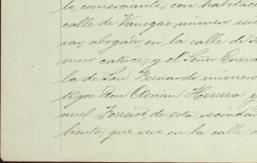 lo, comerciante, con habitació
calle de Vanegas, número sei
vas, abogado, en la calle de S
mero catorce, y el Señor
la de San Bernardo número
tigos don Adrian Herrera y
nuel Ferrero, de esta vecindad
biente que vive en la calle d